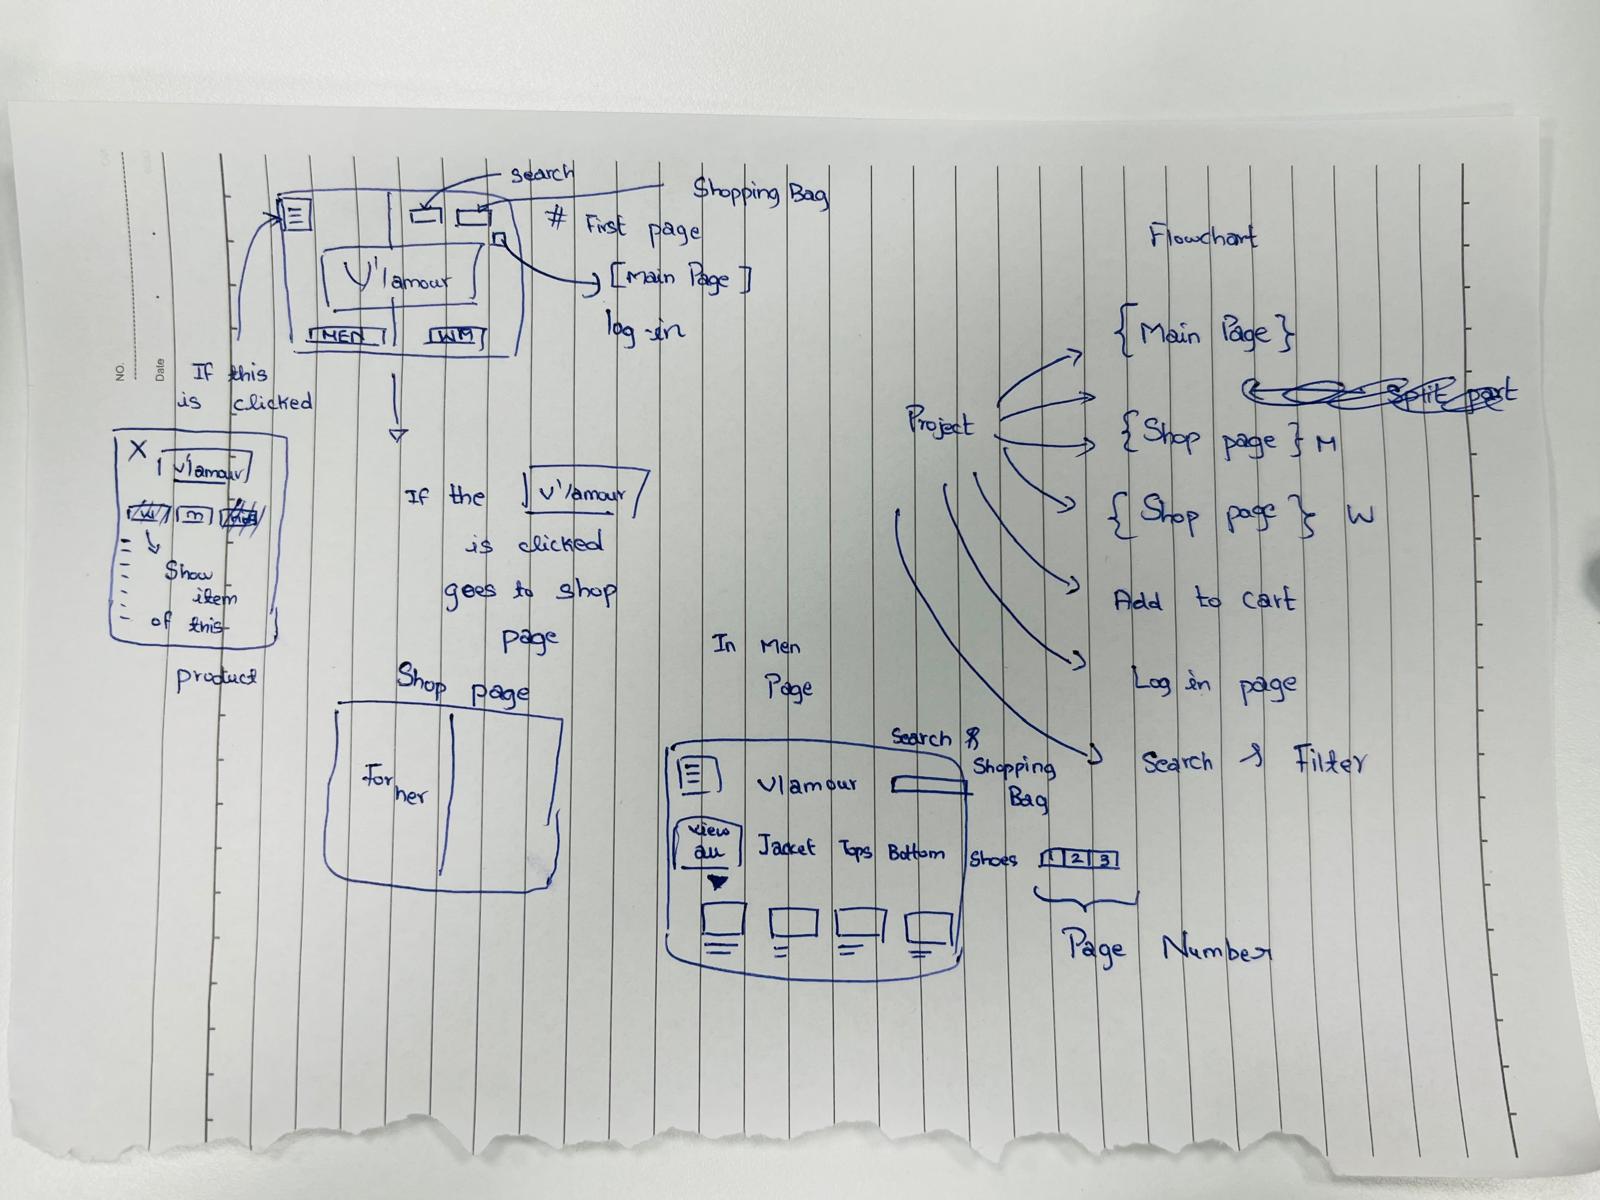 NO.
Date
Search
Shopping Bag
# First page
[Main Page]
log-in
V'lamour
MEN
WM
If this
is clicked
X
V'lamour
W
m
Show
item
of this
product
If the V'lamour
is clicked
goes to shop
page
Shop page
For
her
In Men
Page
Search &
Shopping
Bag
Vlamour
view
all
Jacket Tops Bottom Shoes 1 2 3
Page Number
Flowchart
Project
{Main Page}
Split part
{Shop page} M
{Shop page} W
Add to cart
Log in page
Search & Filter